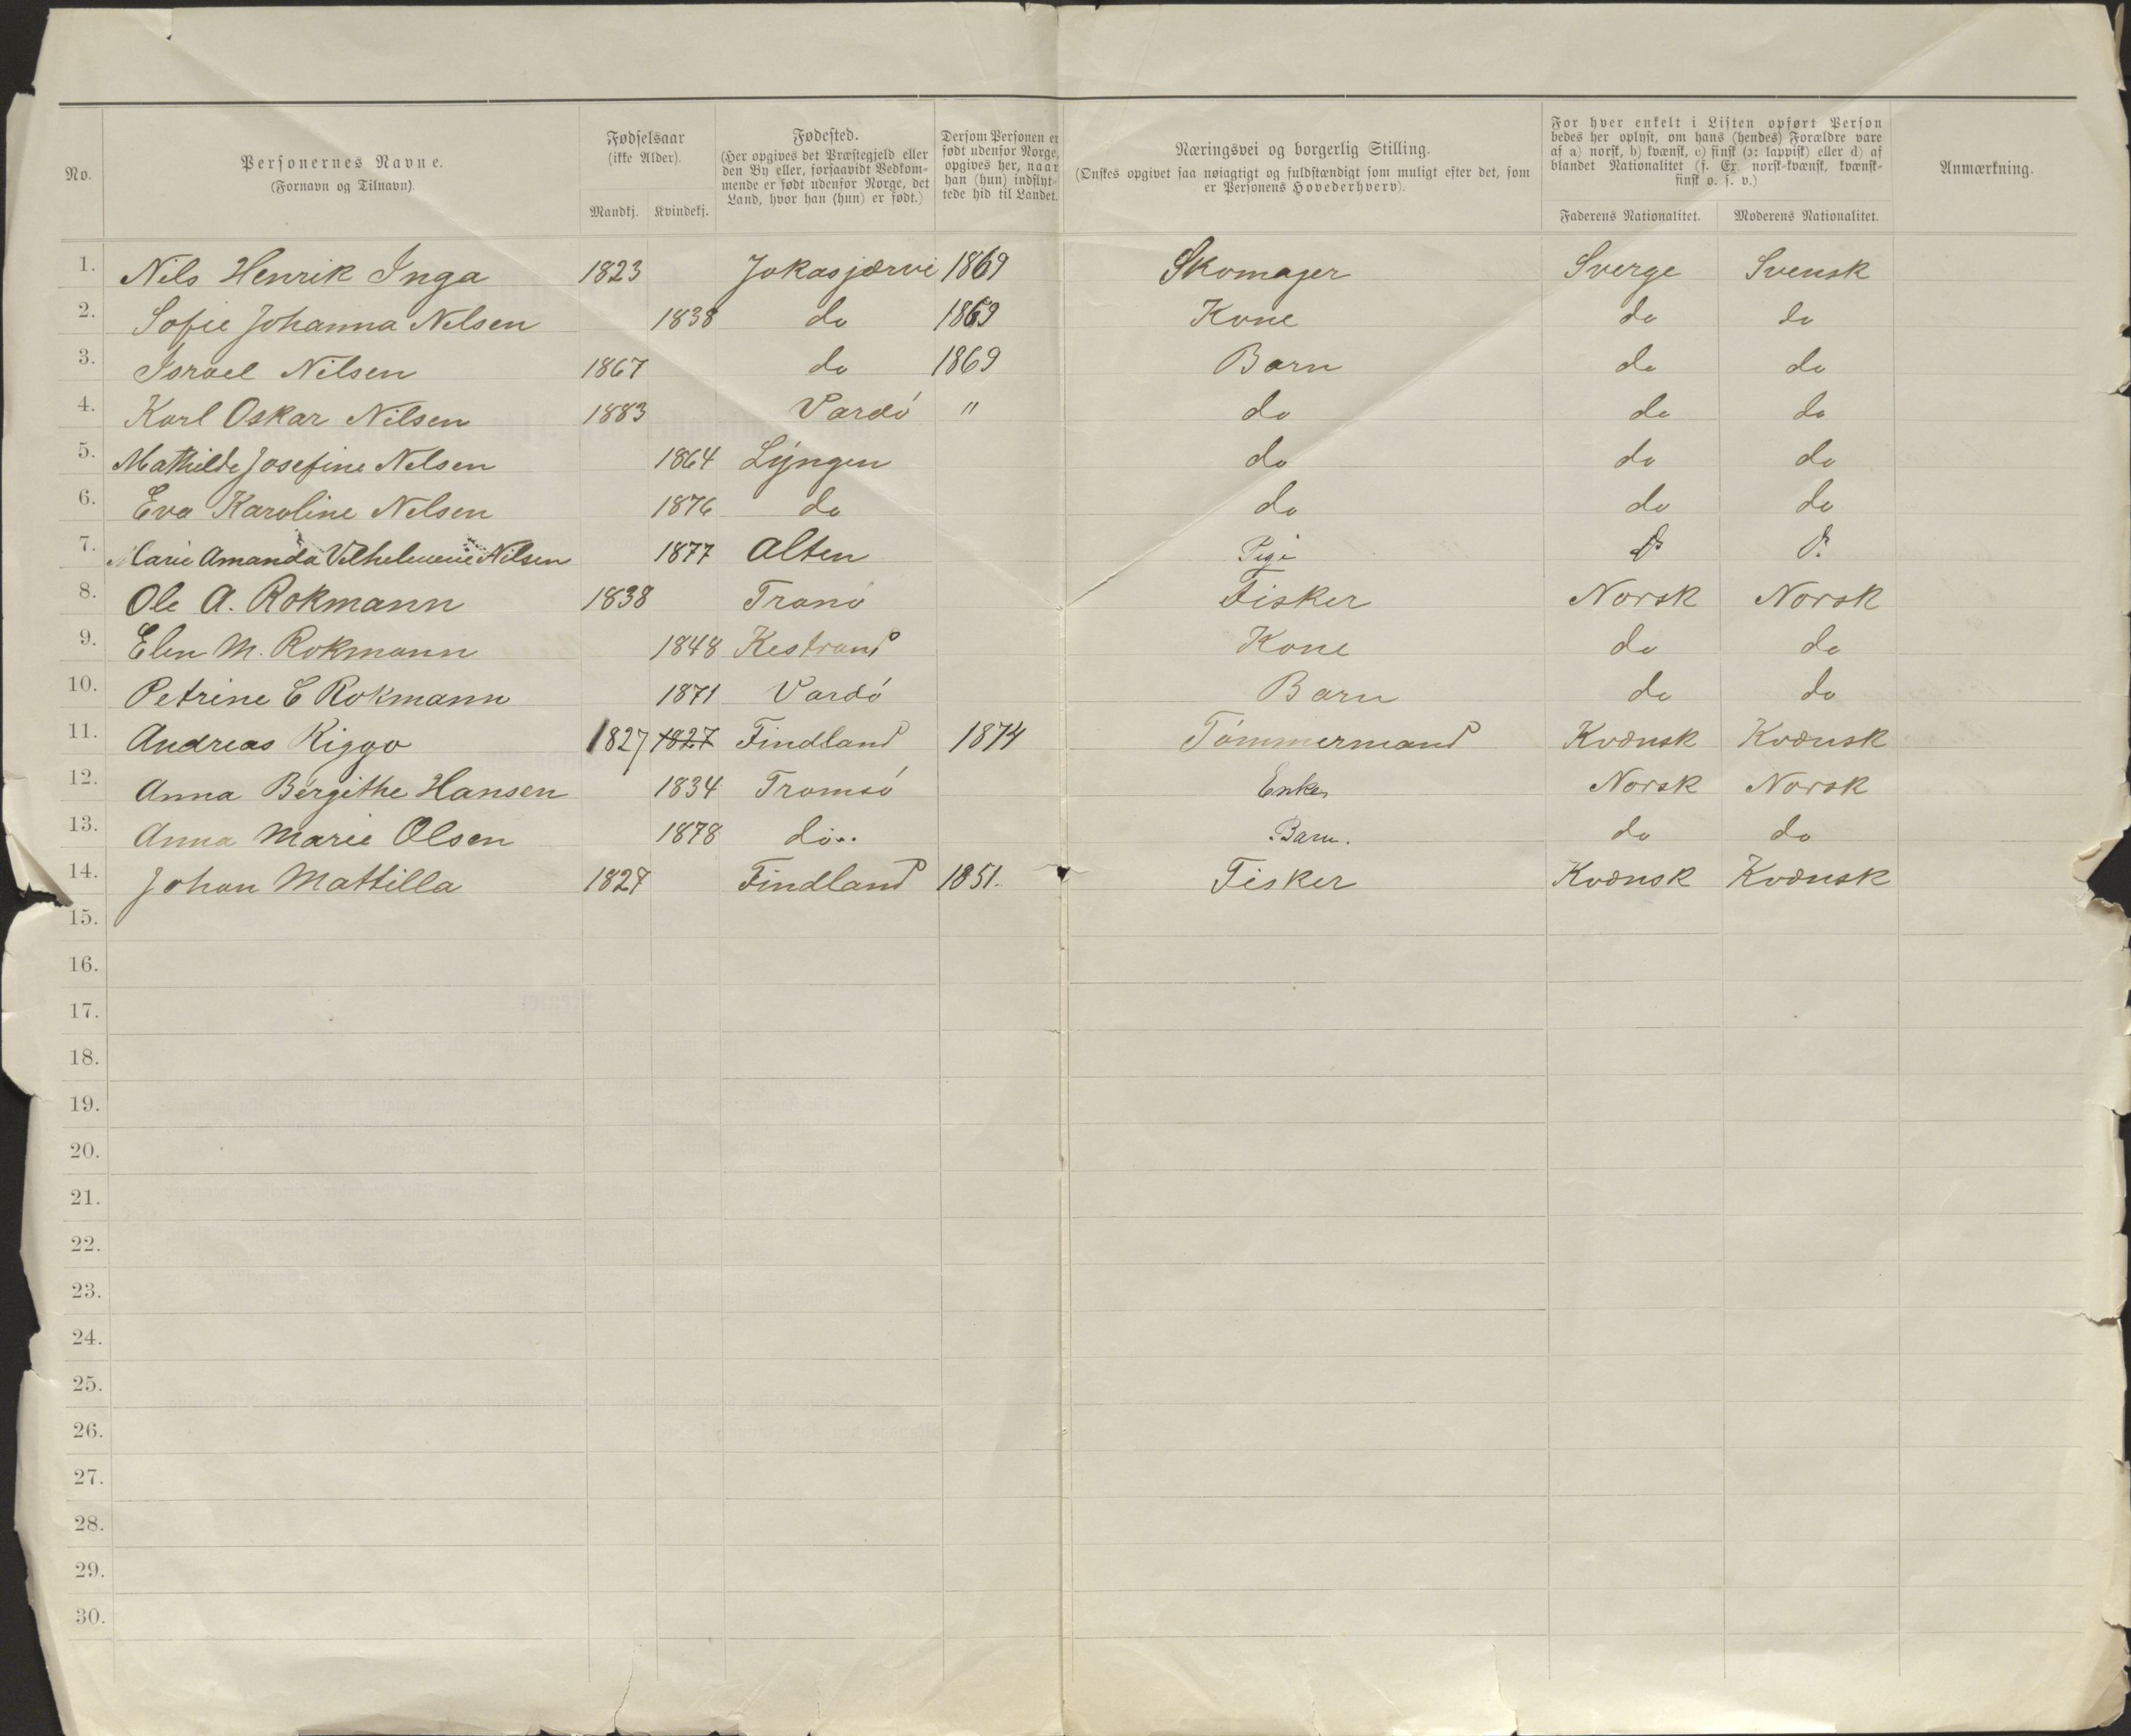 No.
Personernes Navne.
(Fornavn og Tilnavn).
Fødselsaar
(ikke Alder).
Mandkj. Kvindekj.
Fødested.
(Her opgives det Præstegjeld eller
den By eller, forsaavidt Vedkom-
mende er født udenfor Norge, det
Land, hvor han (hun) er født.)
Dersom Personen er
født udenfor Norge,
opgives her, naar
han (hun) indflyt-
tede hid til Landet.
Næringsvei og borgerlig Stilling.
(Ønskes opgivet saa nøiagtigt og fuldstændigt som muligt efter det, som
er Personens Hovederhverv).
For hver enkelt i Listen opført Person
bedes her oplyst, om hans (hendes) Forældre vare
af a) norsk, b) kvænsk, c) finsk (ɔ: lappisk) eller d) af
blandet Nationalitet (f. Ex. norsk-kvænsk, kvænsk-
finsk o. s. v.)
Faderens Nationalitet. Moderens Nationalitet.
Anmærkning.
1. Nils Henrik Inga 1823 Jokasjærvi 1869 Skomager Sverge Svensk
2. Sofie Johanna Nelsen 1838 do 1869 Kone do do
3. Israel Nilsen 1867 do 1869 Barn do do
4. Karl Oskar Nilsen 1883 Vardö " do do do
5. Mathilde Josefine Nelsen 1864 Lyngen do do do
6. Eva Karoline Nelsen 1876 do do do do
7. Marie Amanda Vilhelmine Nilsen 1877 Alten Pige
8. Ole A. Rokmann 1838 Tranö Fisker Norsk Norsk
9. Elen M. Rokmann 1848 Kestrand Kone do do
10. Petrine E Rokmann 1871 Vardö Barn do do
11. Andreas Riggo 1827 1827 Findland 1874 Tömmermand Kvænsk Kvænsk
12. Anna Bergithe Hansen 1834 Tromsö Enke Norsk Norsk
13. Anna Marie Olsen 1878 do.. Barn. do do
14. Johan Mattilla 1827 Findland 1851. Fisker Kvænsk Kvænsk
15.
16.
17.
18.
19.
20.
21.
22.
23.
24.
25.
26.
27.
28.
29.
30.